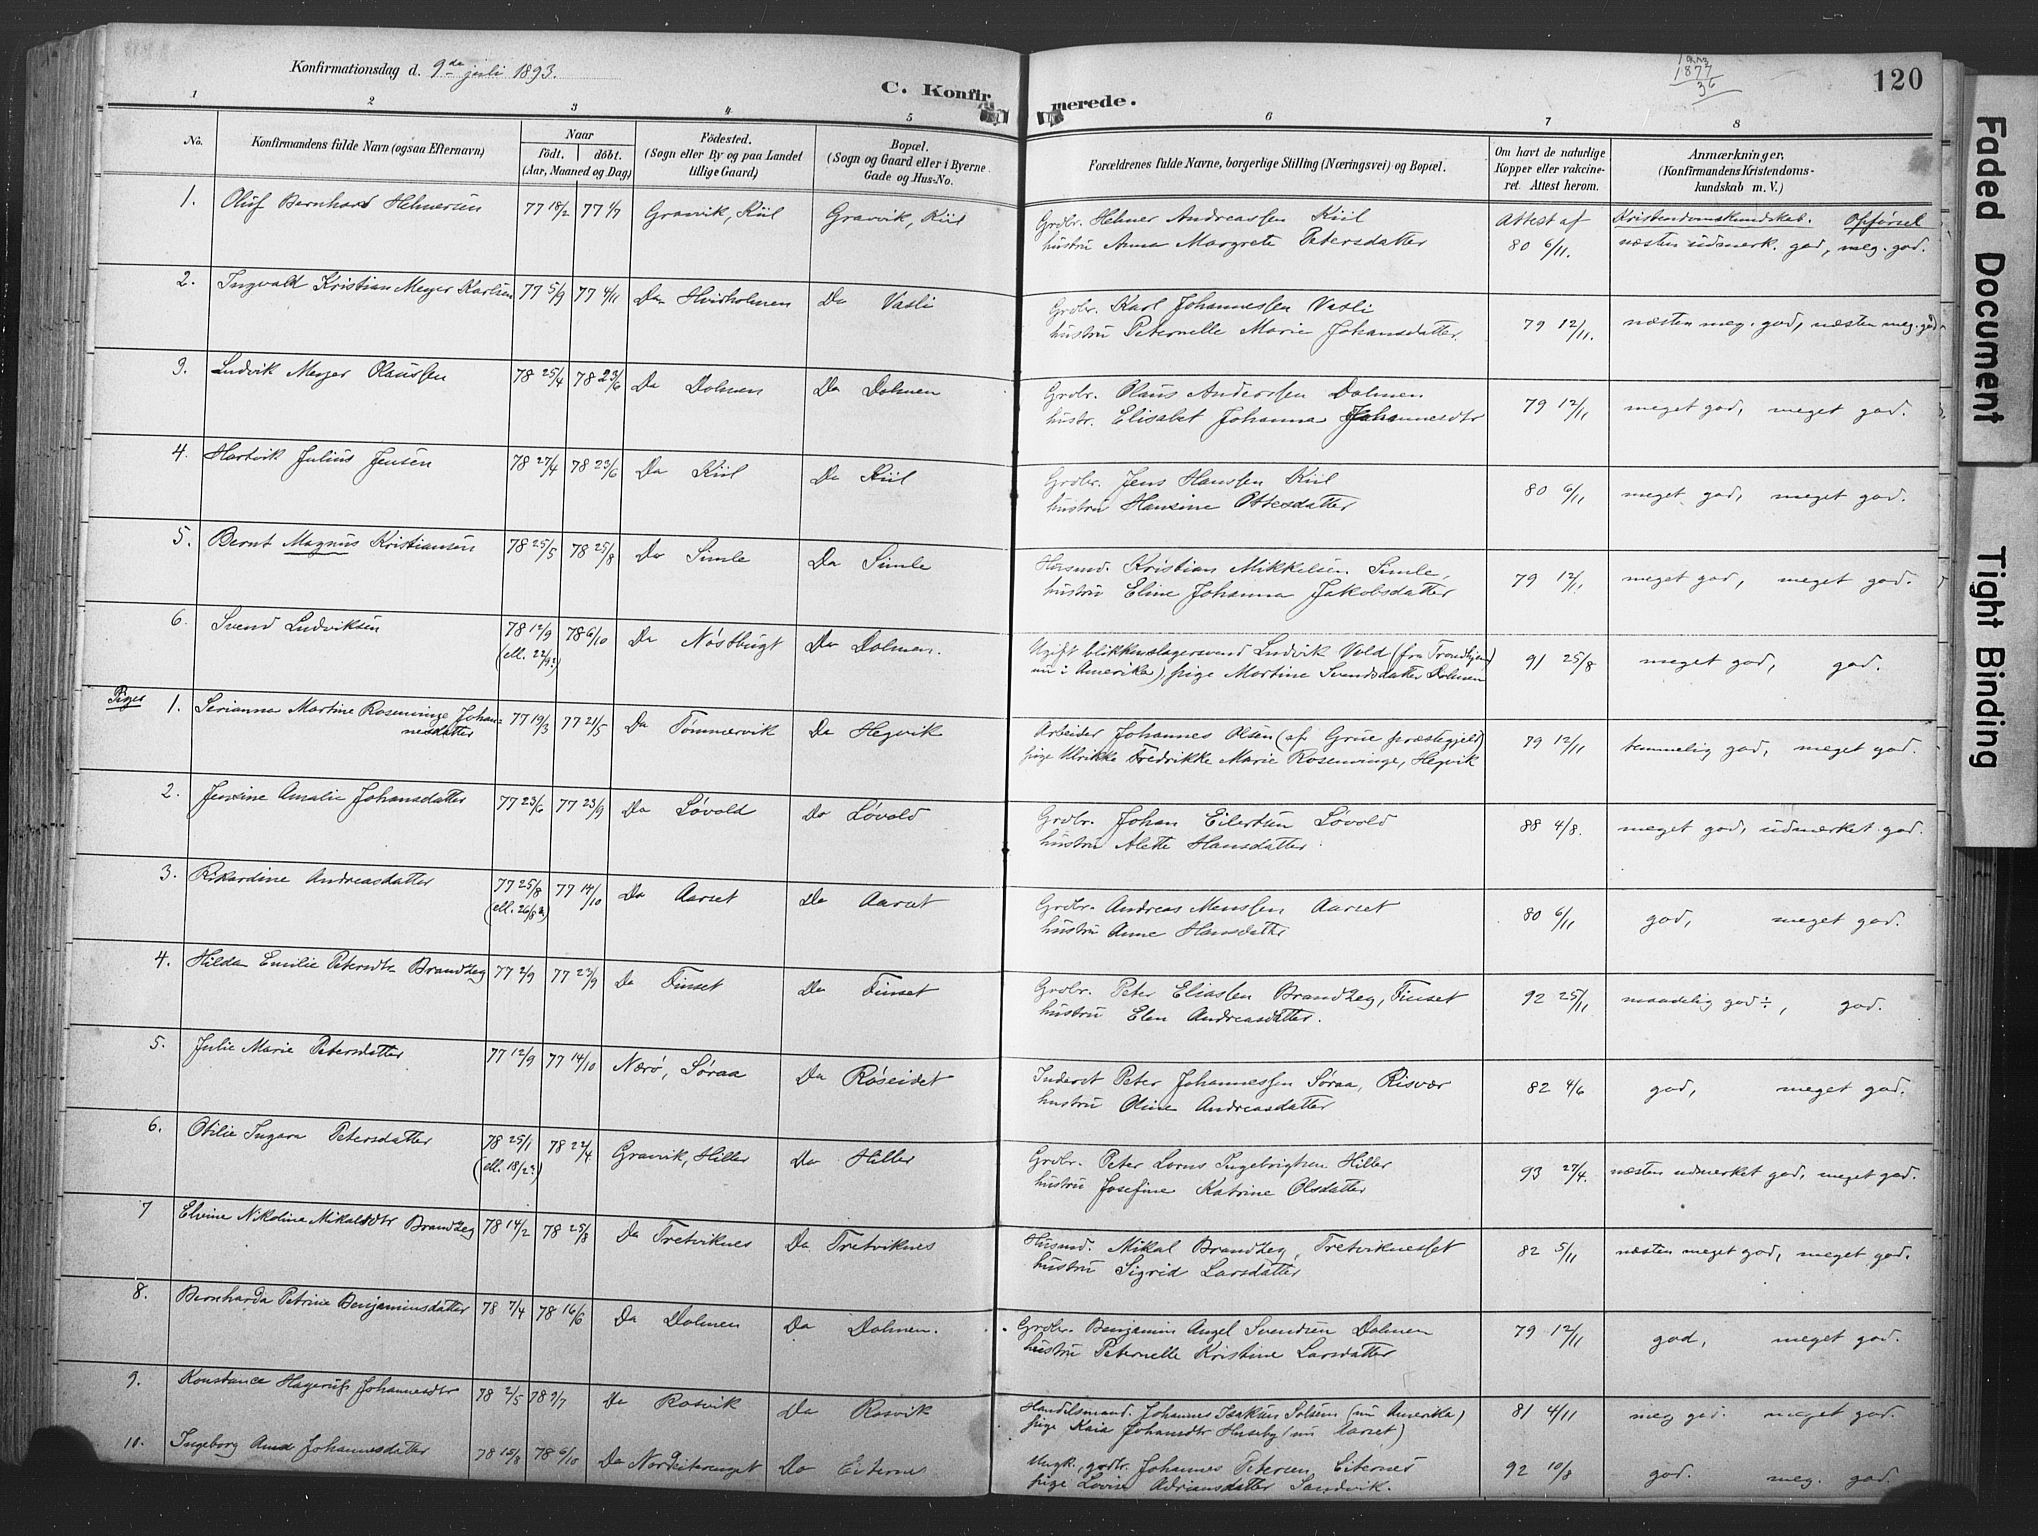 Konfirmationsdag d. 9de juli 1893.
C. Konfir
merede.
1877
36
120
Faded Document
Tight Binding
1 2 3 4 5 6 7 8
No.
Konfirmandens fulde Navn (ogsaa Efternavn)
Naar
födt. döbt.
(Aar, Maaned og Dag)
Födested.
(Sogn eller By og paa Landet
tillige Gaard)
Bopæl.
(Sogn og Gaard eller i Byerne
Gade og Hus-No.
Forældrenes fulde Navne, borgerlige Stilling (Næringsvei) og Bopæl.
Om havt de naturlige
Kopper eller vakcine-
ret. Attest herom.
Anmærkninger.
(Konfirmandens Kristendoms-
kundskab m. V.)
1. Oluf Bernhard Helmersen 77 18/2 77 Gravvik, Kiil Gravvik, Kiil
Grdbr. Helmer Andreassen Kiil Attest af Kristendomskundskab. Opførsel
hustru Anna Margrete Petersdatter 80 6/11. næsten udmerk. god, meg. god.
2. Ingvald Kristian Meyer Karlsen 77 5/9 77 4/11 Do Hvirholmen Do Vasli
Grdbr. Karl Johannessen Vasli
hustru Peternelle Marie Johansdatter. 79 12/11. næsten meg. god, næsten meg. god
3. Ludvik Meyer Olaussen 78 25/4 78 23/6 Do Dolmen Do Dolmen
Grdbr. Olaus Anderssen Dolmen
hustr. Elisabet Johanna Johannesdtr 79 12/11 meget god, meget god.
4. Hartvik Julius Jensen 78 27/4 78 23/6 Do Kiil Do Kiil
Grdbr. Jens Hanssen Kiil
hustru Hansine Ottesdatter 80 6/11 meget god, meget god.
5. Bernt Magnus Kristiansen 78 25/5 78 25/8 Do Simle Do Simle
Husmd. Kristian Mikkelsen Simle,
hustru Eline Johanna Jakobsdatter 79 12/11. meget god, meget god.
6. Svend Ludviksen 78 12/9 78 6/10 Do Nøstbugt Do Dolmen.
(ell. 22/9?)
Ugift blikkenslagersvend Ludvik Vold (fra Trondhjem
nu i Amerika), pige Martine Svendsdatter Dolmen 91 25/8 meget god, god.
Piger 1. Serianna Martine Rosenvinge Johan-
nesdatter 77 19/3 77 21/5 Do Tømmervik Do Hegvik
Arbeider Johannes Olsen (af Grue præstegjeld)
pige Ulrikke Fredrikke Marie Rosenvinge, Hegvik 79 12/11 temmelig god, meget god.
2. Jensine Amalie Johansdatter 77 23/6 77 23/9 Do Løvold Do Løvold
Grdbr. Johan Eilertsen Løvold
hustru Alette Hansdatter 88 4/8. meget god, udmerket god.
3. Rikardine Andreasdatter 77 25/8 77 14/10 Do Aarset Do Aarset
(ell. 26/8?)
Grdbr. Andreas Monssen Aarset
hustru Anne Hansdatter 80 6/11 god, meget god.
4. Hilda Emilie Petersdtr Brandzeg 77 2/9 77 23/9 Do Finset Do Finset
Grdbr. Peter Eliassen Brandzeg, Finset
hustru Elen Andreasdatter. 92 25/11 maadelig god ÷, god.
5. Julie Marie Petersdatter 77 12/9 77 14/10 Nærø, Søraa Do Røseidet
Inderst Peter Johannessen Søraa, Risvær
hustru Oline Andreasdatter 82 4/6 god, meget god.
6. Otilie Ingara Petersdatter 78 25/1 78 22/4 Gravvik, Hiller Do Hiller
(ell. 18/2?)
Grdbr. Peter Lorns Ingebrigtsen Hiller
hustru Josefine Katrine Olsdatter 93 27/4. næsten udmerket god, meget god.
7 Elvine Nikoline Mikalsdtr Brandzeg 78 14/2 78 25/8 Do Tretviknes Do Tretviknes
Husmd. Mikal Brandzeg, Tretviknesset
hustru Sigrid Larsdatter 82 5/11 næsten meget god, meget god.
8. Bernharda Petrine Benjaminsdatter 78 7/4 78 16/6 Do Dolmen Do Dolmen.
Grdbr. Benjamin Angel Svendsen Dolmen
hustru Peternelle Kristine Larsdatter 79 12/11 god, meget god.
9. Konstance Hagerup Johannesdtr 78 2/5 78 9/7 Do Rosvik Do Rosvik
Handelsmand. Johannes Isaksen Solsem (nu Amerika)
pige Kaia Johansdtr Huseby (nu Aarset) 81 4/11 meg god. meget god.
10. Ingeborg Anna Johannesdatter 78 15/8 78 6/10 Do Nordeiterenget Do Eiternes
Ungk. gdbr. Johannes Petersen Eiternes
pige Lovise Adriansdatter Sandvik. 92 10/8 god. meg. god.